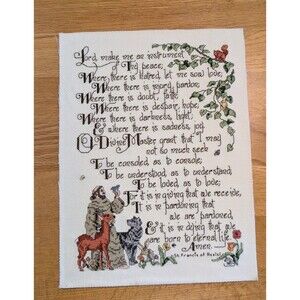 Lord, make me an instrument
of Thy peace;
Where there is hatred, let me sow love;
Where there is injury, pardon;
Where there is doubt, faith;
Where there is despair, hope;
Where there is darkness, light;
& where there is sadness, joy.
O Divine Master grant that I may
not so much seek
To be consoled as to console;
To be understood as to understand;
To be loved as to love;
For it is in giving that we receive,
It is in pardoning that
we are pardoned,
& it is in dying that we
are born to eternal life.
Amen.
St. Francis of Assisi